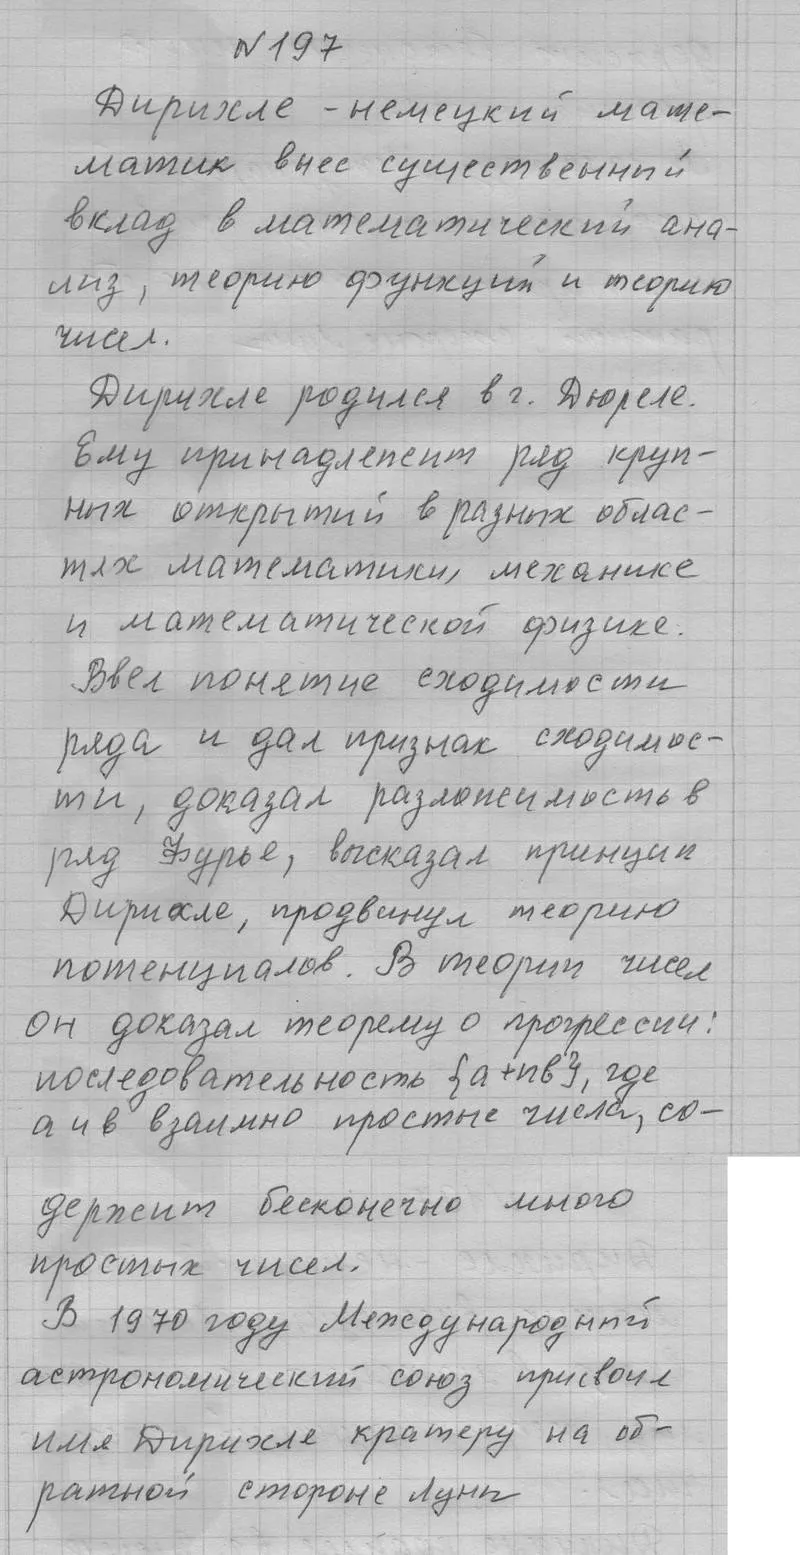 N197
Дирихле - немецкий мате-
матик внес существенный
вклад в математический ана-
лиз, теорию функций и теорию
чисел.
Дирихле родился в г. Дюреле.
Ему принадлежит ряд круп-
ных открытий в разных облас-
тях математики, механике
и математической физике.
Ввел понятие сходимости
ряда и дал признак сходимос-
ти, доказал разложимость в
ряд Фурье, высказал принцип
Дирихле, продвинул теорию
потенциалов. В теории чисел
он доказал теорему о прогрессии:
последовательность {а+nв}, где
а и в взаимно простые числа, со-
держит бесконечно много
простых чисел.
В 1970 году Международный
астрономический союз присвоил
имя Дирихле кратеру на об-
ратной стороне Луны